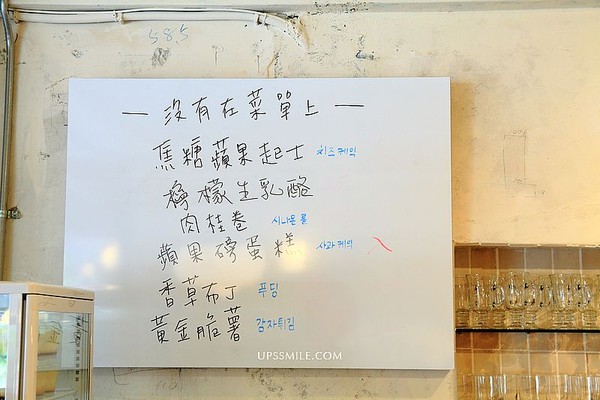 585
— 沒有在菜單上 —
焦糖蘋果起士 치즈케익
檸檬生乳酪
肉桂卷 시나몬롤
蘋果磅蛋糕 사과케익
香草布丁 푸딩
黃金脆薯 감자튀김
UPSSMILE.COM